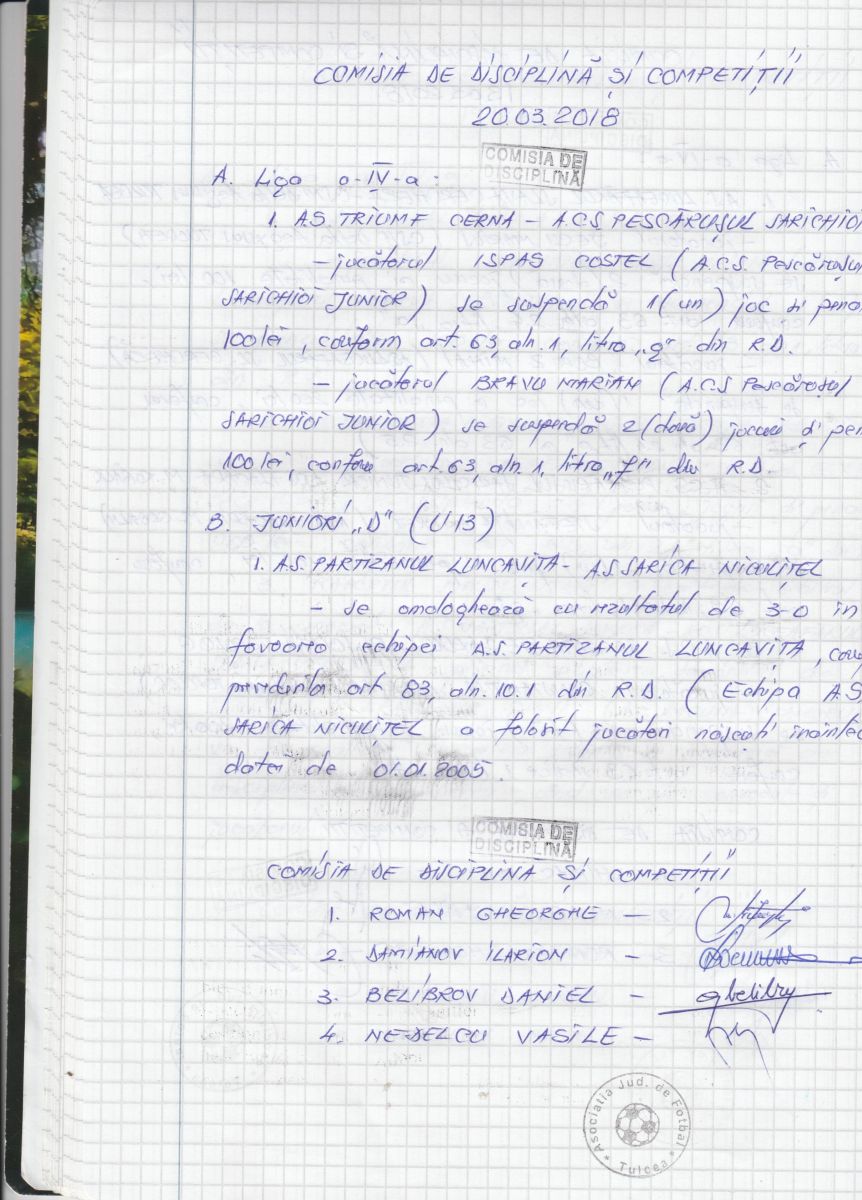 COMISIA DE DISCIPLINĂ ȘI COMPETIȚII
20.03.2018
COMISIA DE
DISCIPLINĂ
A. Liga a-IV-a:
1. A.S. TRIUMF CERNA - A.C.S. PESCĂRUȘUL SARICHIOI
- jucătorul ISPAS COSTEL (A.C.S. Pescărușul
SARICHIOI JUNIOR) se suspendă 1 (un) joc și pena
100 lei, conform art. 63, aln. 1, litra „g" din R.D.
- jucătorul BRAVU MARIAN (A.C.S Pescărușul
SARICHIOI JUNIOR) se suspendă 2 (două) jocuri și pen
100 lei, conform art. 63, aln. 1, litra „f" din R.D.
B. JUNIORI „D" (U13)
1. A.S. PARTIZANUL LUNCAVIȚA - A.S. SARICA NICULIȚEL
- se omologhează cu rezultatul de 3-0 în
favoarea echipei A.S. PARTIZANUL LUNCAVIȚA, con
prevederile art 83, aln. 10.1 din R.D. (Echipa A.S
SARICA NICULIȚEL a folosit jucători născuți înainte
datei de 01.01.2005.
COMISIA DE
DISCIPLINĂ
COMISIA DE DISCIPLINA ȘI COMPETIȚII
1. ROMAN GHEORGHE -
2. DAMIANOV ILARION -
3. BELIBROV DANIEL -
4. NEDELCU VASILE -
Asociatia Jud. de Fotbal
* Tulcea *